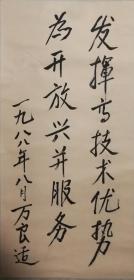 发揮高技术优势
為开放兴并服务
一九八八年八月万良适